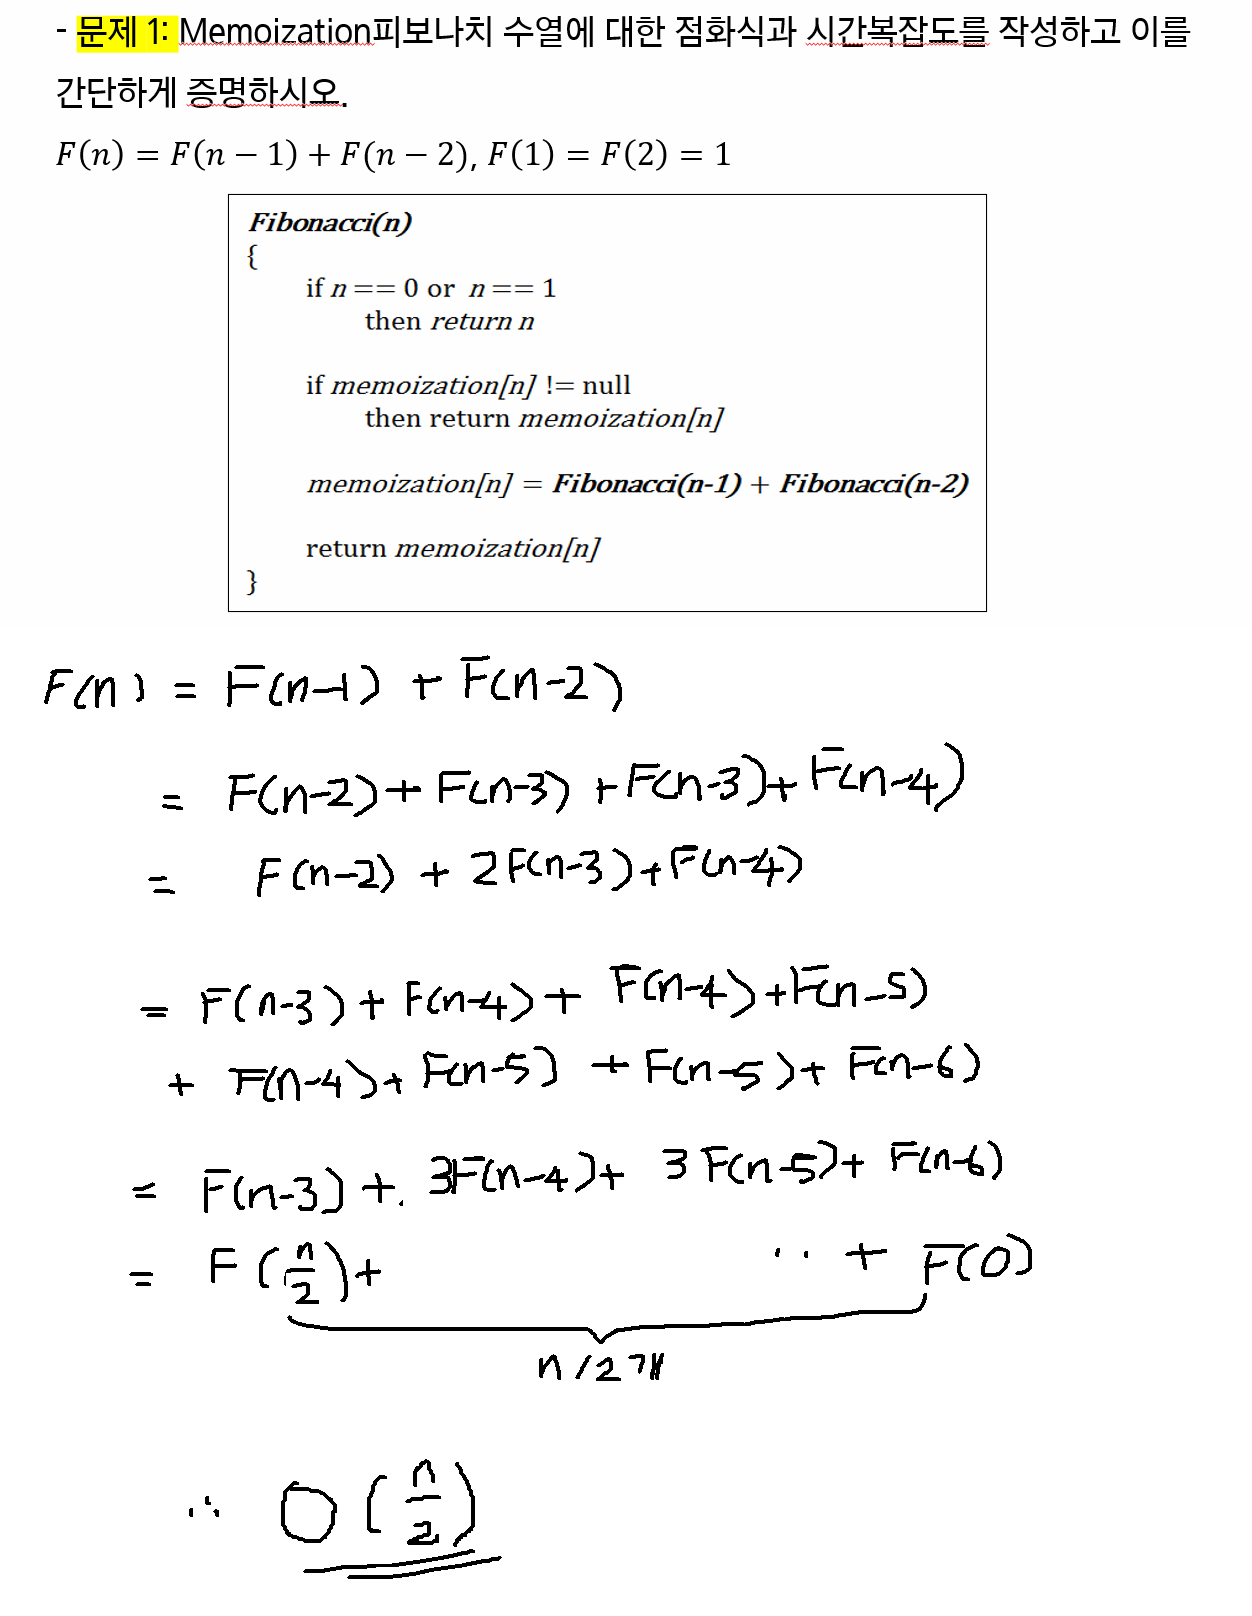 - 문제 1: Memoization피보나치 수열에 대한 점화식과 시간복잡도를 작성하고 이를
간단하게 증명하시오.
F(n) = F(n − 1) + F(n − 2), F(1) = F(2) = 1
Fibonacci(n)
{
if n == 0 or n == 1
then return n
if memoization[n] != null
then return memoization[n]
memoization[n] = Fibonacci(n-1) + Fibonacci(n-2)
return memoization[n]
}
F(n) = F(n-1) + F(n-2)
= F(n-2) + F(n-3) + F(n-3) + F(n-4)
= F(n-2) + 2F(n-3) + F(n-4)
= F(n-3) + F(n-4) + F(n-4) + F(n-5)
+ F(n-4) + F(n-5) + F(n-5) + F(n-6)
= F(n-3) + 3F(n-4) + 3F(n-5) + F(n-6)
= F(n/2) + ·· + F(0)
n/2개
∴ O(n/2)